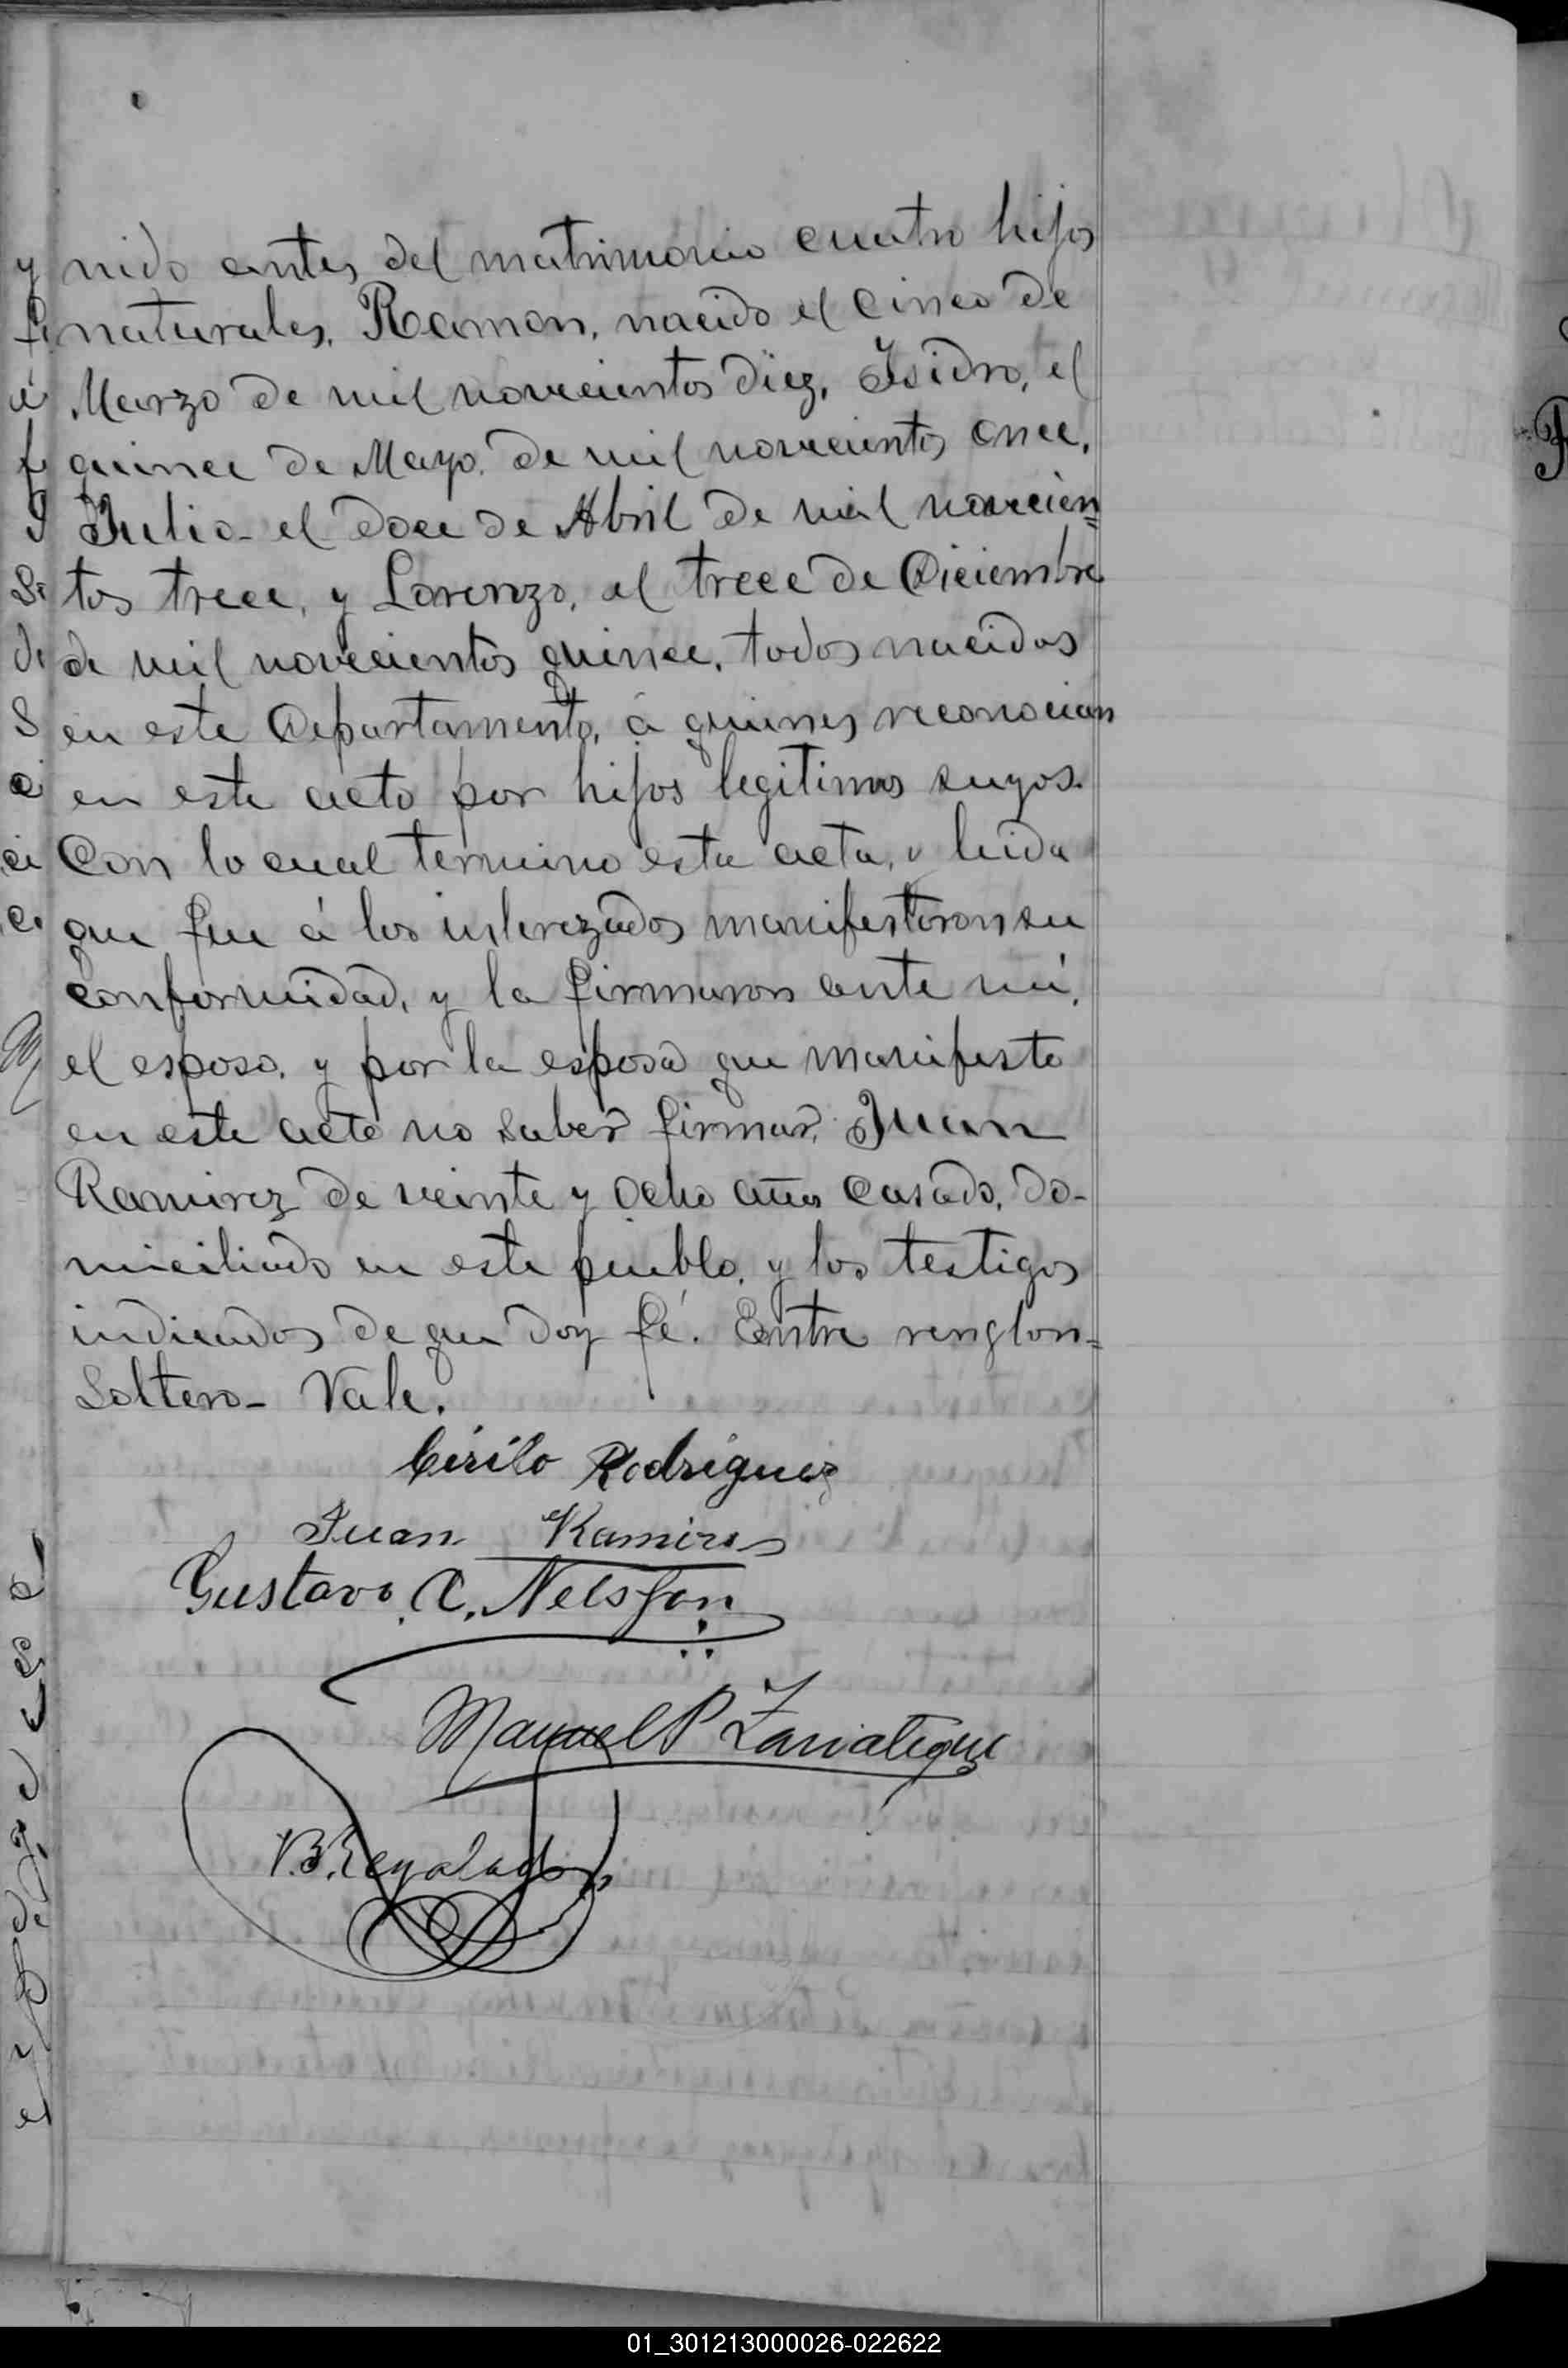 nido antes del matrimonio cuatro hijos
naturales, Ramon, nacido el cinco de
Marzo de mil novecientos diez, Isidro, el
quince de Mayo de mil novecientos once,
Julio el doce de Abril de mil novecien=
tos trece, y Lorenzo, el trece de Diciembre
de mil novecientos quince, todos nacidos
en este Departamento, á quienes reconocian
en este acto por hijos legitimos suyos.
Con lo cual termino esta acta, y leida
que fue á los interezados manifestaron su
conformidad, y la firmaron ante mi,
el esposo, y por la esposa que manifesto
en este acto no saber firmar, Juan
Ramirez de veinte y ocho años casado, do-
miciliado en este pueblo, y los testigos
indicados de que doy fé. Entre renglon=
Soltero- Vale.
Cirilo Rodriguez
Juan Ramires
Gustavo. C. Nelsson
Manuel P
01_301213000026-022622